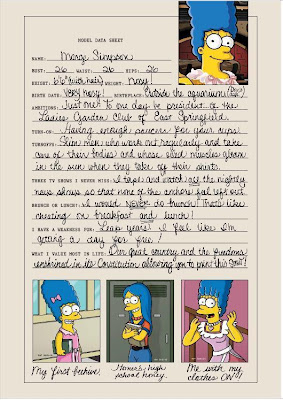 MODEL DATA SHEET
NAME: Marge Simpson
BUST: 26 WAIST: 26 HIPS: 26
HEIGHT: (with hair) WEIGHT: Nosy!
BIRTH DATE: Very nosy! BIRTHPLACE: Outside the aquarium
AMBITIONS: Just one! To one day be president of the
Ladies Garden Club of East Springfield.
TURN-ON: Having enough saucers for your cups!
TURNOFFS: Slim men who work out regularly and take
care of their bodies and whose muscles gleam
in the sun when they take off their shirts.
THREE TV SHOWS I NEVER MISS: I tape and watch all the nightly
news shows so that none of the anchors feel left out.
BRUNCH OR LUNCH?: I would NEVER do brunch! That's like
cheating on breakfast and lunch!
I HAVE A WEAKNESS FOR: Leap years! I feel like I'm
getting a day for free!
WHAT I VALUE MOST IN LIFE: Our great country and the freedoms
enshrined in its Constitution allowing you to print this
My first beehive.
Homer's high
school honey.
Me with my
clothes ON!